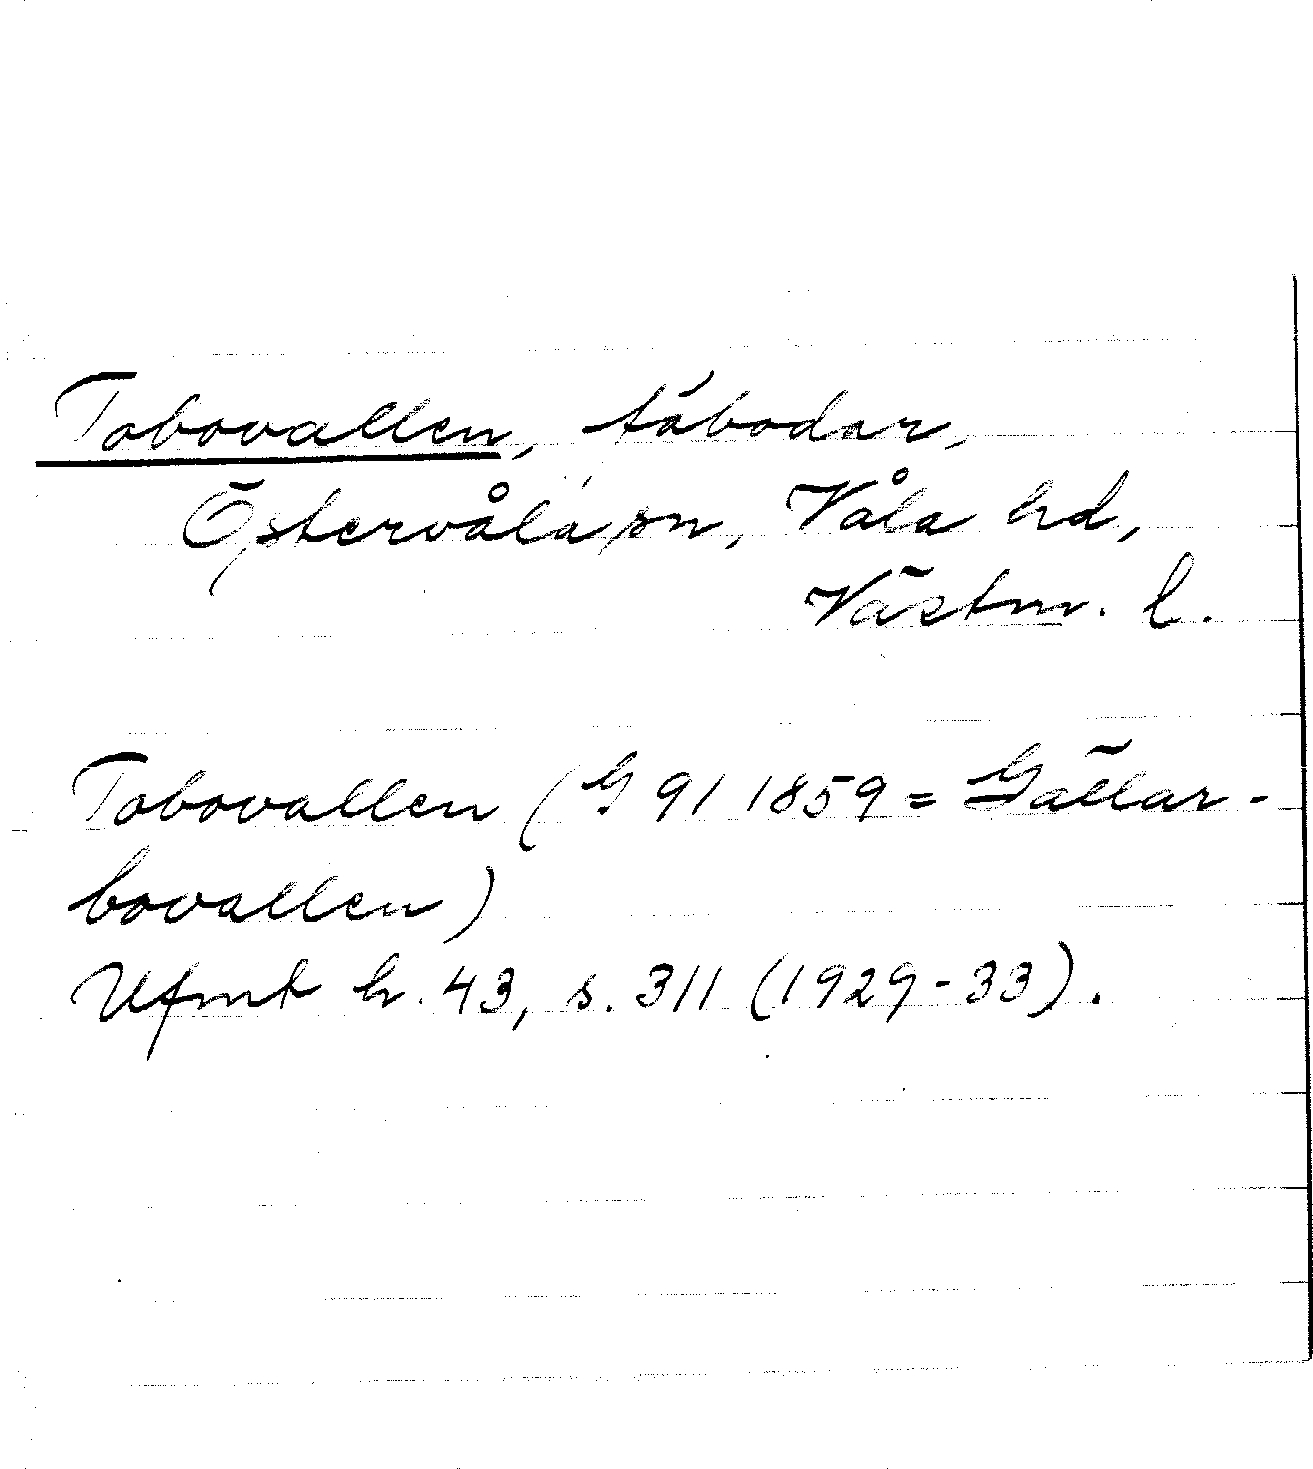 Tobovallen, fäbodar,
Östervåla sn, Våla hd,
Västm. l.
Tobovallen (G 91 1859 = Gällar-
bovallen)
Ufmt h. 43, s. 311 (1929-33).